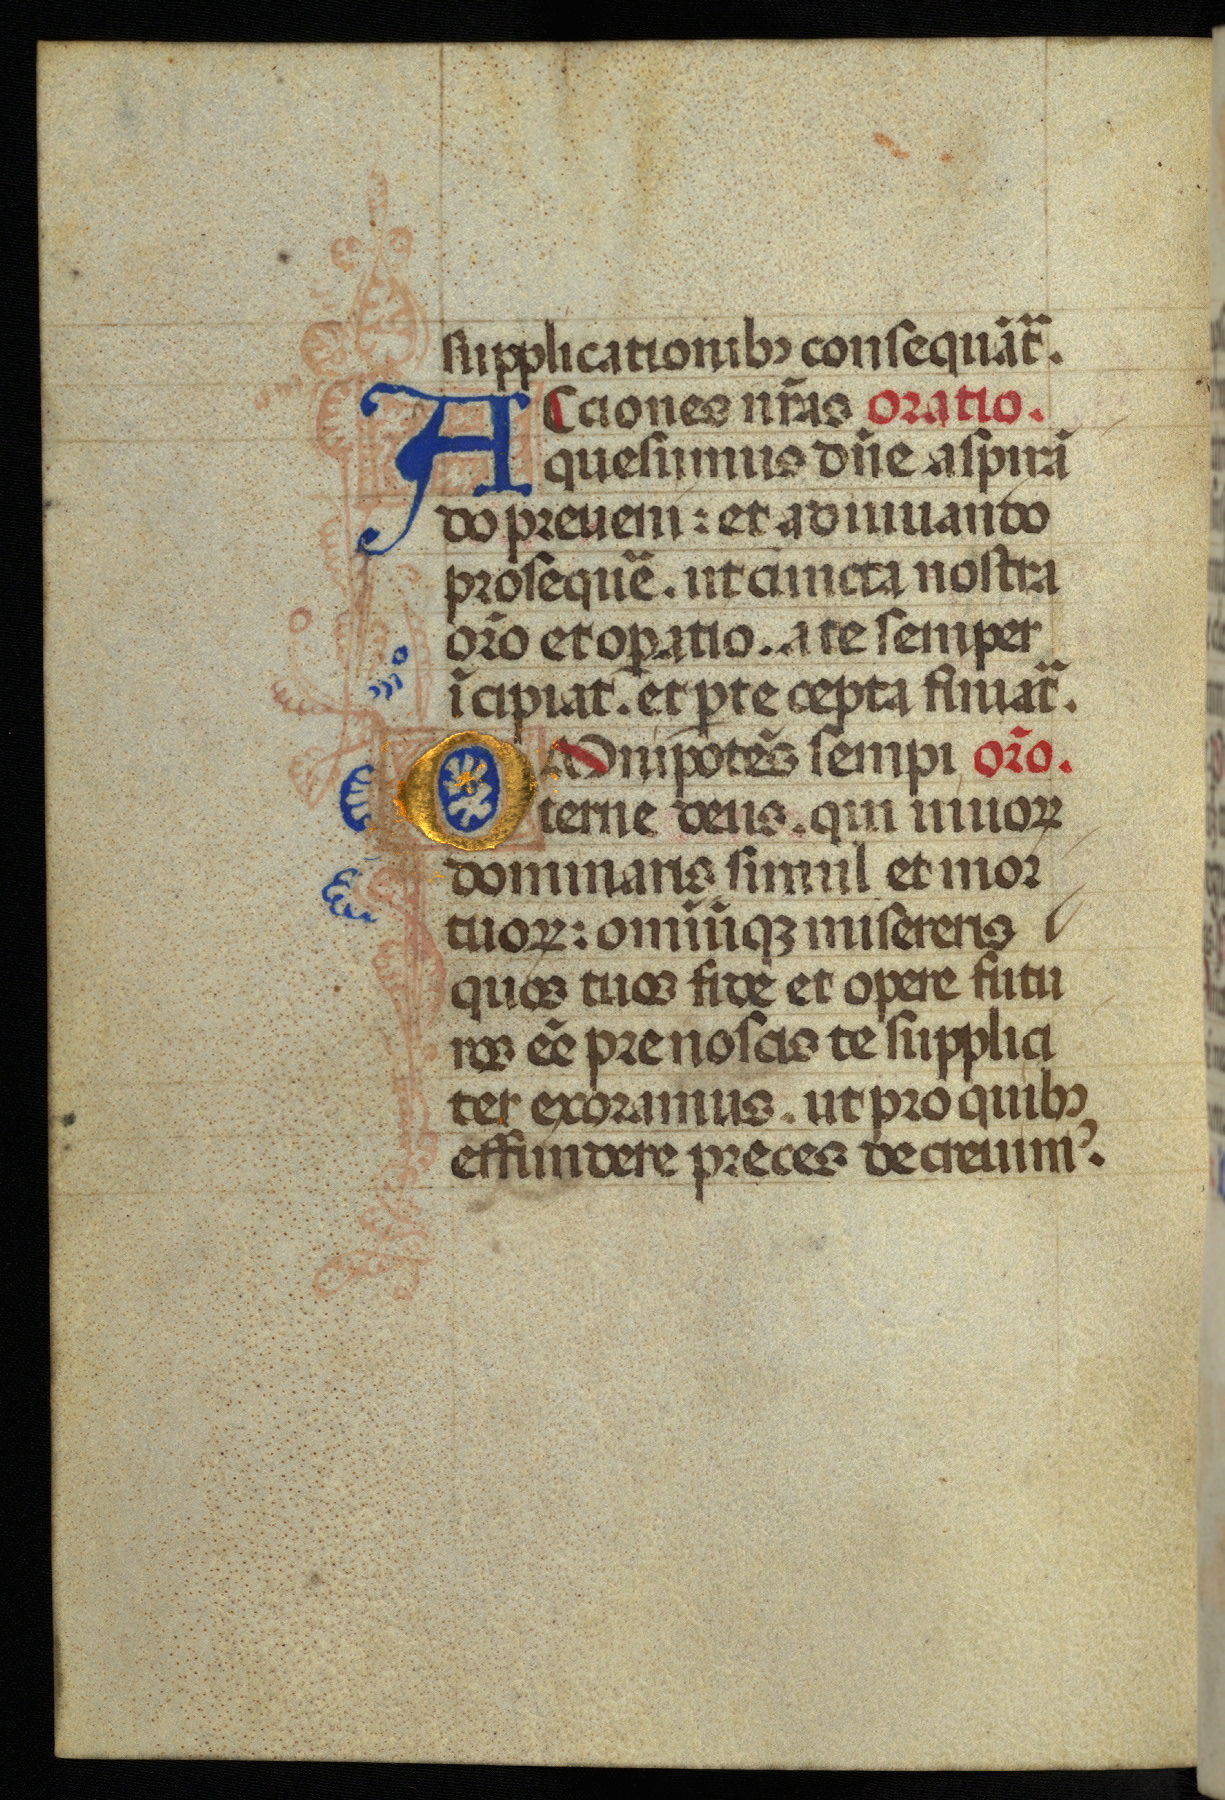 supplicationibꝰ consequãt̃.
ACciones nr̃as oratio.
quesumus dñe aspirã
do preueni : et adiuuando
prosequẽ. ut cuncta nostra
or̃o et oꝑatio. a te semper
ĩcipiat. et ꝑ te cepta finiat̃.
OMnipotẽs sempi or̃o.
terne deus. qui uiuoꝝ
dominaris simul et mor
tuoꝝ : omniũqꝫ misereris
quos tuos fide et opere futu
ros eẽ prenoscis te supplici
ter exoramus. ut pro quibꝰ
effundere preces decreuimꝰ.